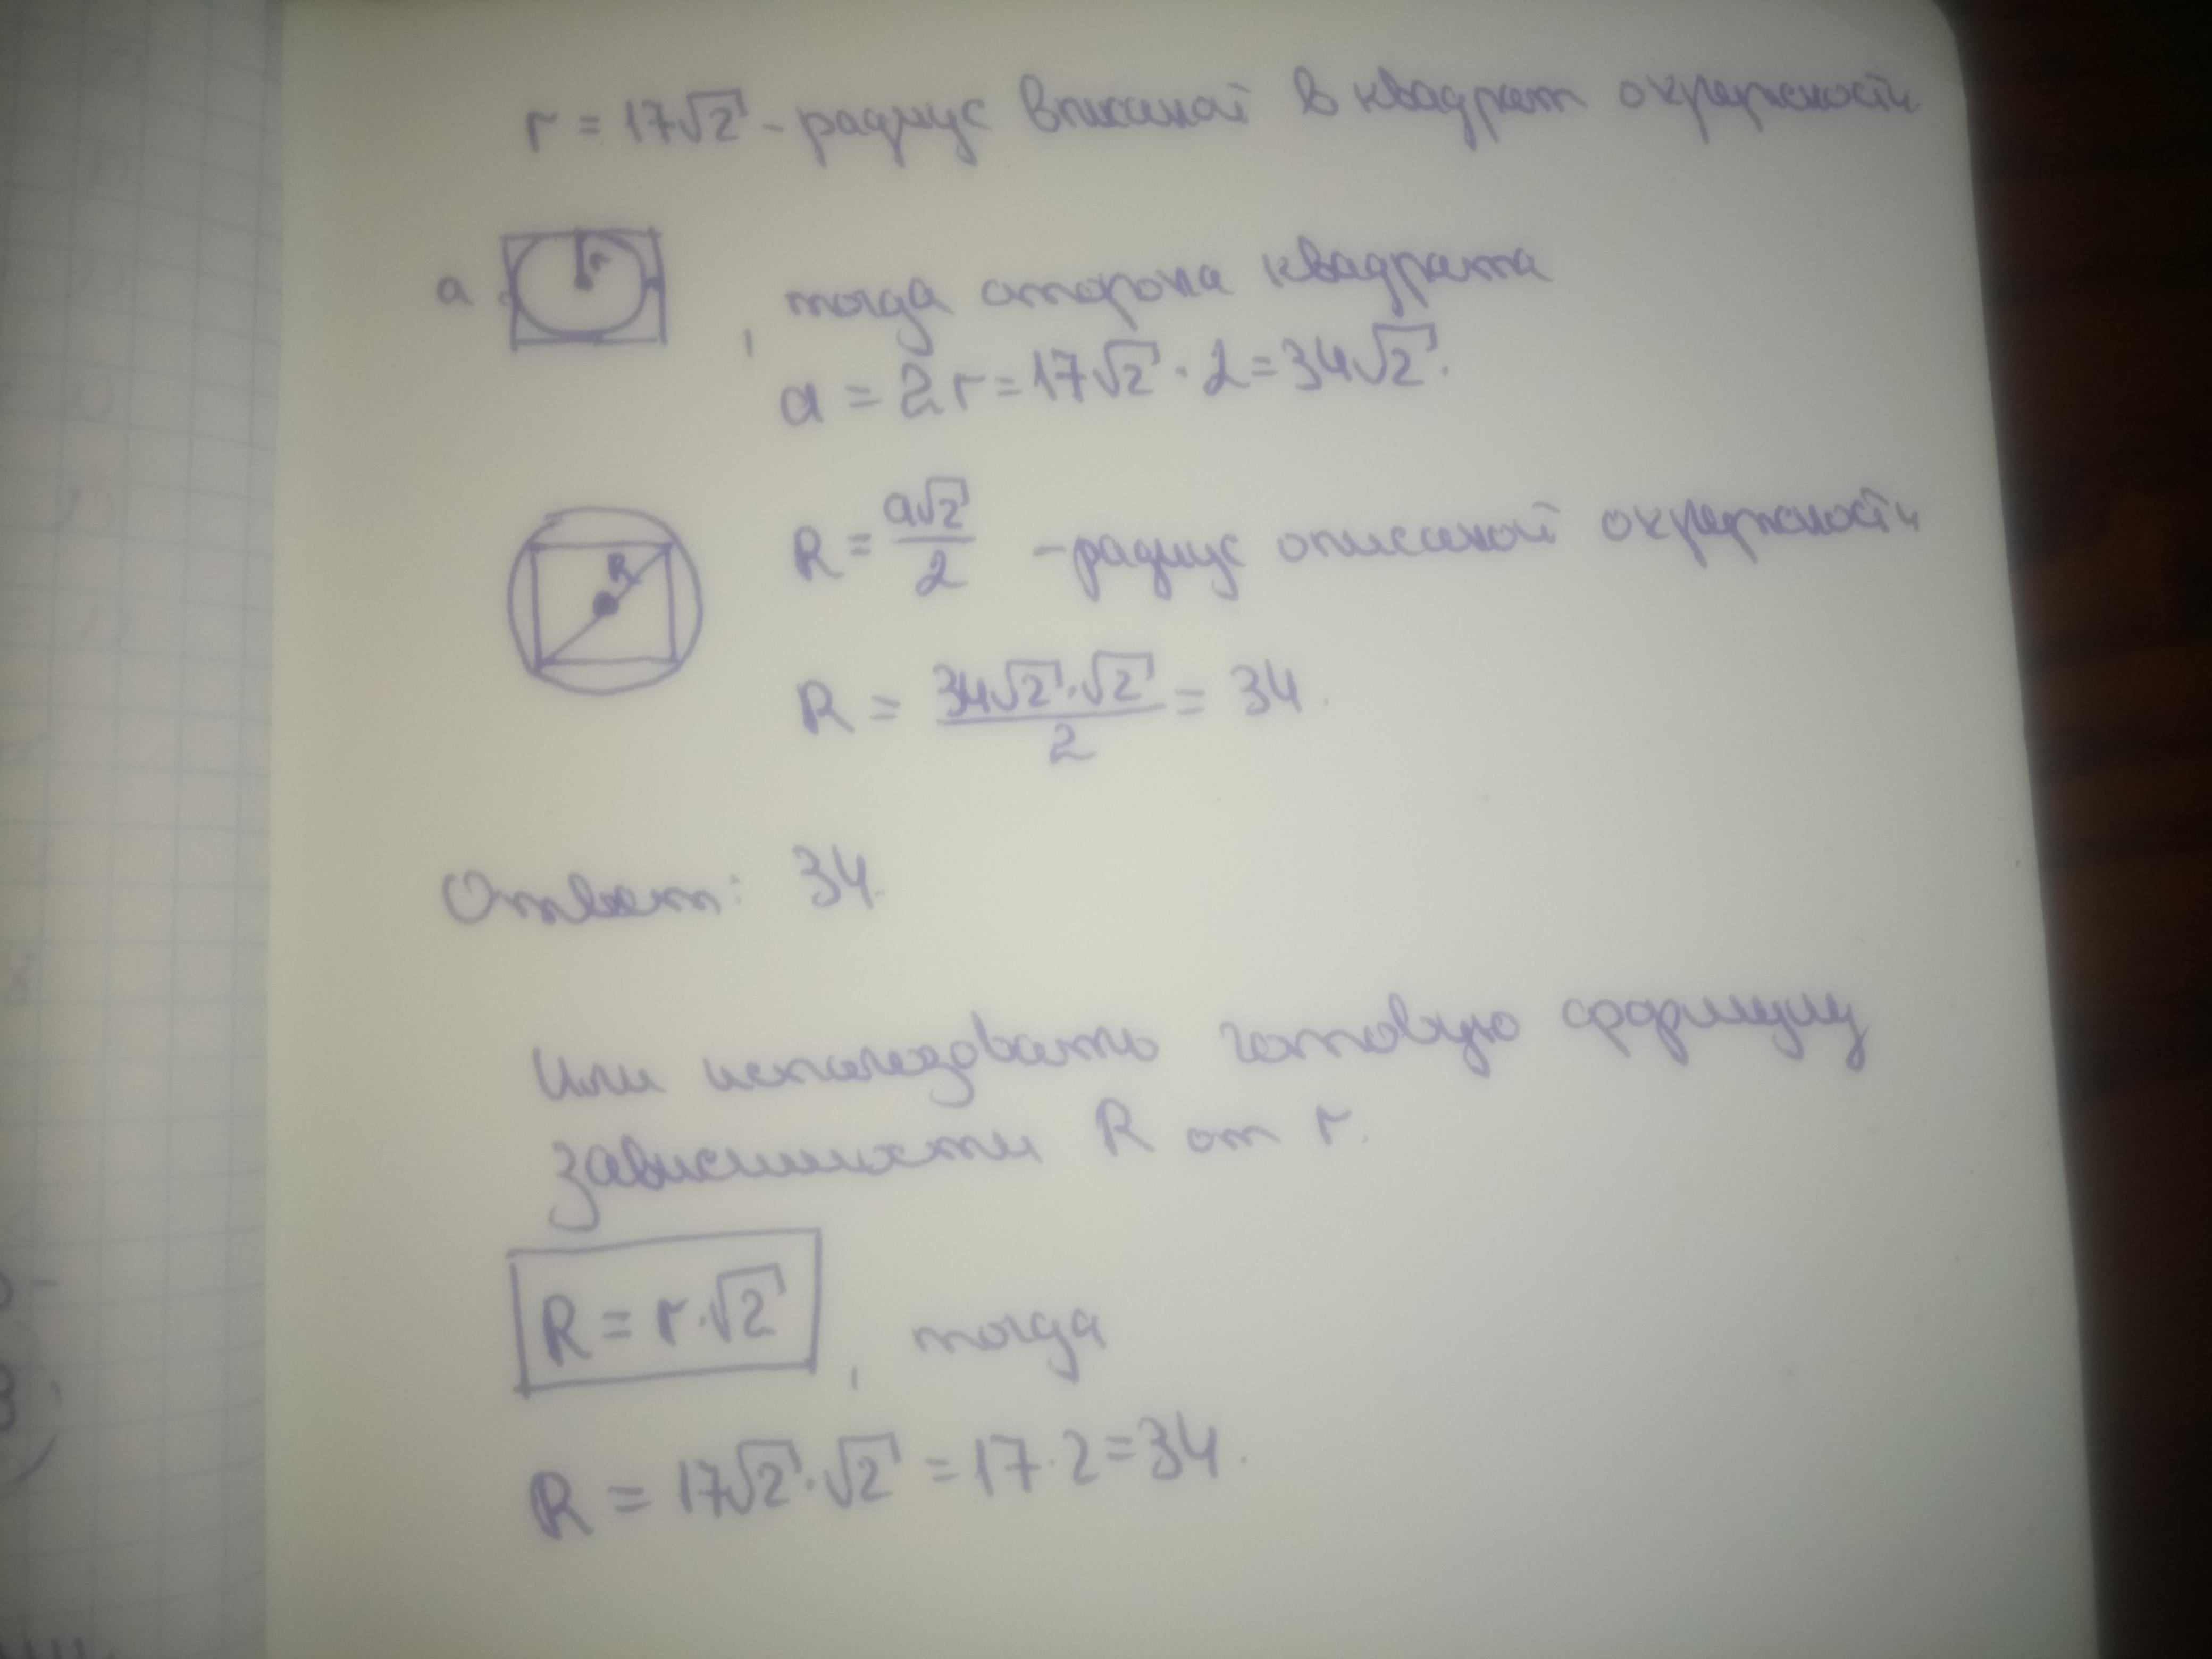 r = 17√2 - радиус вписаной в квадрат окружности
a r , тогда сторона квадрата
a = 2r = 17√2 · 2 = 34√2.
R = a√2/2 - радиус описаной окружности
R
R = 34√2·√2/2 = 34.
Ответ: 34.
Или использовать готовую формулу
зависимости R от r.
R = r·√2 , тогда
R = 17√2·√2 = 17·2 = 34.